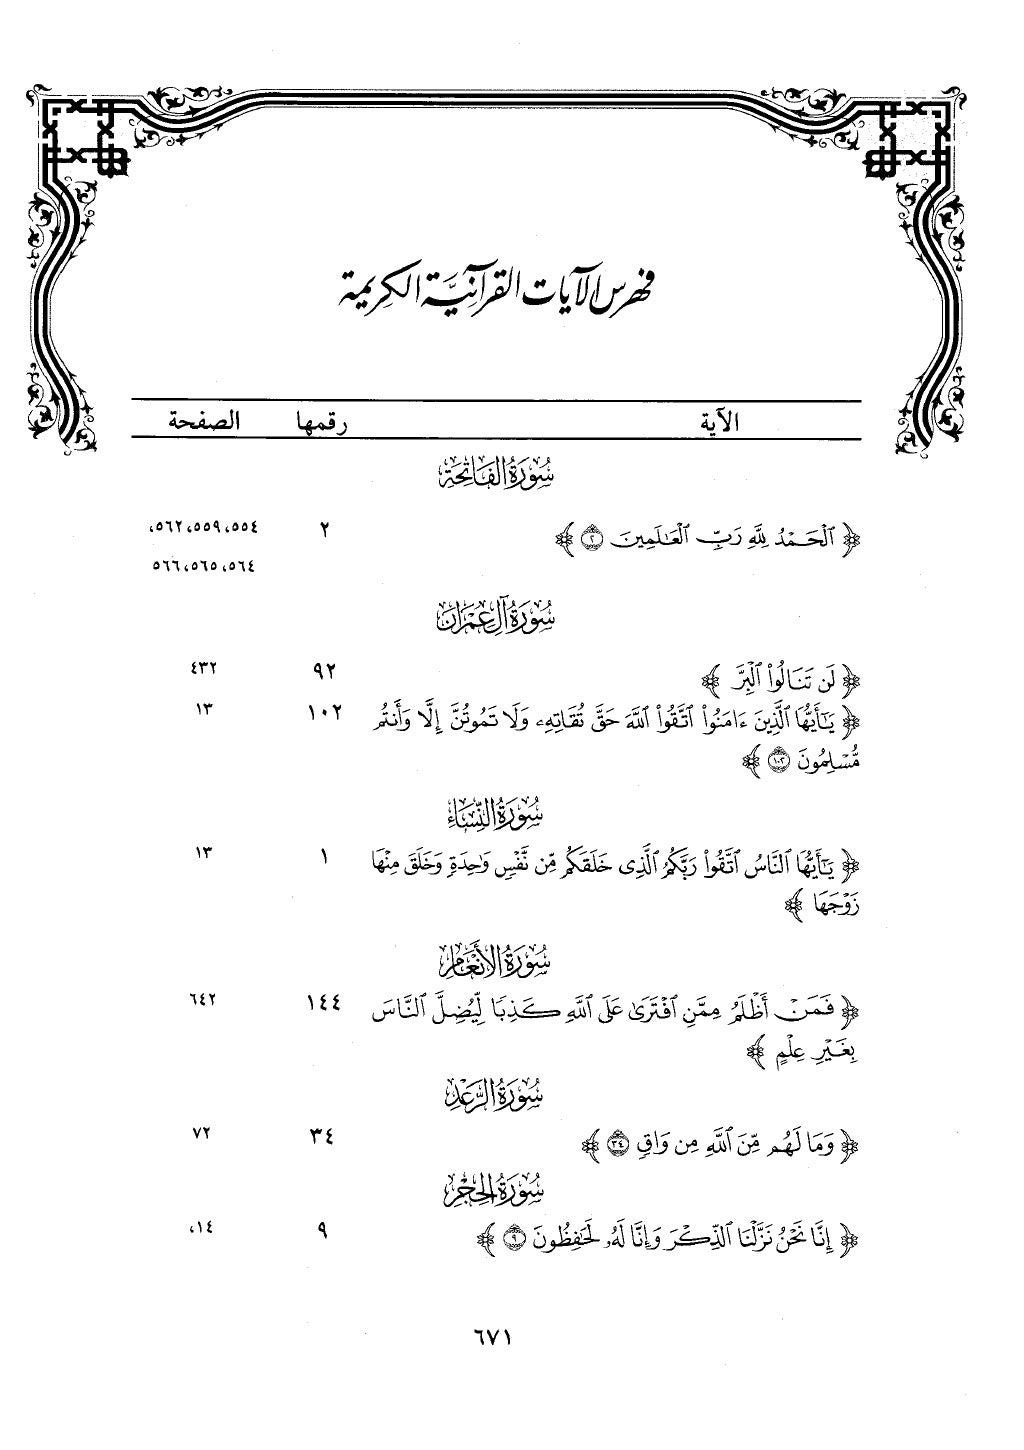 فهرس الآيات القرآنيَّة الكريمة
الآية رقمها الصفحة
سُورَةُ الفَاتِحَة
﴿ اَلْحَمْدُ لِلَّهِ رَبِّ اَلْعَالَمِينَ ۝٢ ﴾ ٢ ٥٥٤، ٥٥٩، ٥٦٢،
٥٦٤، ٥٦٥، ٥٦٦
سُورَةُ آلِ عِمْرَانَ
﴿ لَن تَنَالُواْ اَلْبِرَّ ﴾ ٩٢ ٤٣٢
﴿ يَٰٓأَيُّهَا اَلَّذِينَ ءَامَنُواْ اَتَّقُواْ اَللَّهَ حَقَّ تُقَاتِهِۦ وَلَا تَمُوتُنَّ إِلَّا وَأَنتُم ١٠٢ ١٣
مُّسْلِمُونَ ۝١٠٢ ﴾
سُورَةُ النِّسَاءِ
﴿ يَٰٓأَيُّهَا اَلنَّاسُ اَتَّقُواْ رَبَّكُمُ اَلَّذِى خَلَقَكُم مِّن نَّفْسٍ وَٰحِدَةٍ وَخَلَقَ مِنْهَا ١ ١٣
زَوْجَهَا ﴾
سُورَةُ الأَنْعَامِ
﴿ فَمَنْ أَظْلَمُ مِمَّنِ اَفْتَرَىٰ عَلَى اَللَّهِ كَذِبًا لِّيُضِلَّ اَلنَّاسَ ١٤٤ ٦٤٢
بِغَيْرِ عِلْمٍ ﴾
سُورَةُ الرَّعْدِ
﴿ وَمَا لَهُم مِّنَ اَللَّهِ مِن وَاقٍ ۝٣٤ ﴾ ٣٤ ٧٢
سُورَةُ الحِجْرِ
﴿ إِنَّا نَحْنُ نَزَّلْنَا اَلذِّكْرَ وَإِنَّا لَهُۥ لَحَٰفِظُونَ ۝٩ ﴾ ٩ ١٤،
٦٧١